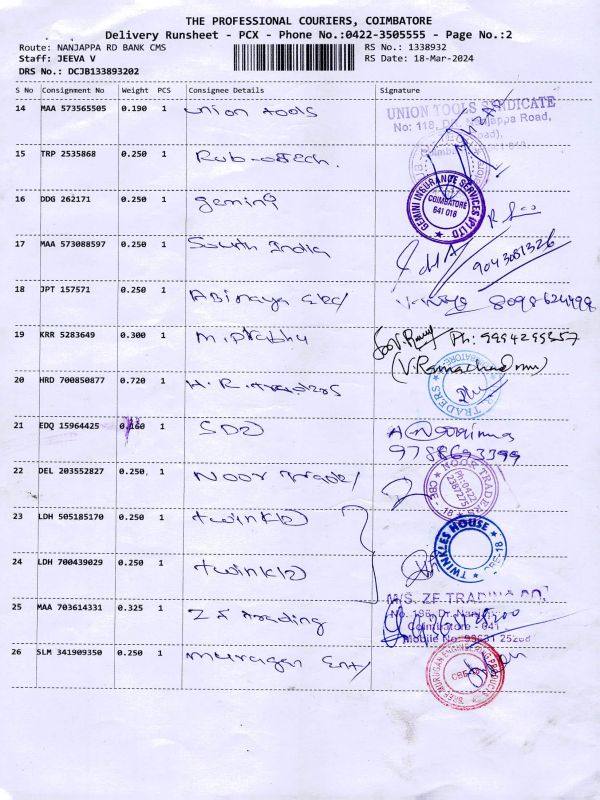 THE PROFESSIONAL COURIERS, COIMBATORE
Delivery Runsheet - PCX - Phone No.:0422-3505555 - Page No.:2
Route: NANJAPPA RD BANK CMS RS No.: 1338932
Staff: JEEVA V RS Date: 18-Mar-2024
DRS No.: DCJB133893202
S No Consignment No Weight PCS Consignee Details Signature
14 MAA 573565505 0.190 1 Union tools
UNION TOOLS SYNDICATE
No: 118, Nanjappa Road,
15 TRP 2535868 0.250 1
16 DDG 262171 0.250 1 gemini
GEMINI INSURANCE SERVICES (P) LTD
COIMBATORE
641 018
17 MAA 573088597 0.250 1 South India
9043081326
18 JPT 157571 0.250 1 Abinaya 8098624498
19 KRR 5283649 0.300 1 M. Prabhu Ph: 9994299357
20 HRD 700850877 0.720 1 H.R. traders
TRADERS
21 EDQ 15964425 0.160 1
9788693399
22 DEL 203552827 0.250 1 Noor Trade/
NOOR TRADERS
CBE - 18
23 LDH 505185170 0.250 1
TWINKLES HOUSE
24 LDH 700439029 0.250 1
25 MAA 703614331 0.325 1 ZF trading
M/S. ZF TRADING CO.
26 SLM 341909350 0.250 1 murugan Ent/
SREE MURUGAN ENGINEERING PRODUCTS